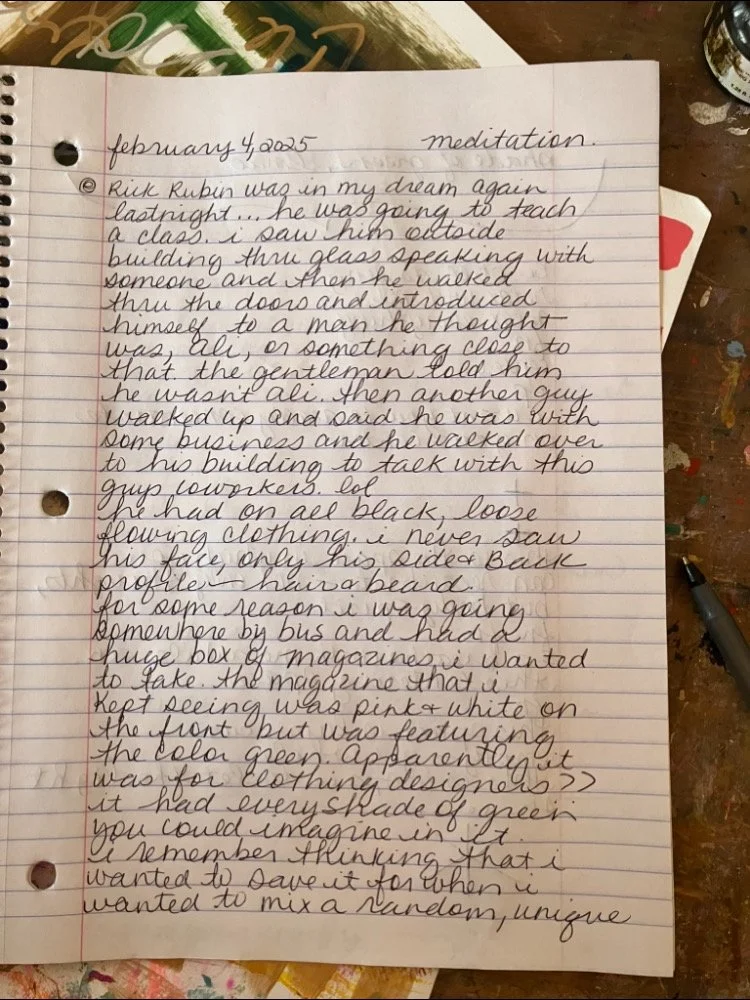 february 4, 2025 meditation.
© Rick Rubin was in my dream again
lastnight... he was going to teach
a class. i saw him outside
building thru glass speaking with
someone and then he walked
thru the doors and introduced
himself to a man he thought
was, ali, or something close to
that. the gentleman told him
he wasn't ali. then another guy
walked up and said he was with
some business and he walked over
to his building to talk with this
guys coworkers. lol
he had on all black, loose
flowing clothing. i never saw
his face, only his side & Back
profile — hair & beard.
for some reason i was going
somewhere by bus and had a
huge box of magazines, i wanted
to take. the magazine that i
kept seeing was pink & white on
the front but was featuring
the color green. Apparently it
was for clothing designers >>
it had every shade of green
you could imagine in it.
i remember thinking that i
wanted to save it for when i
wanted to mix a random, unique